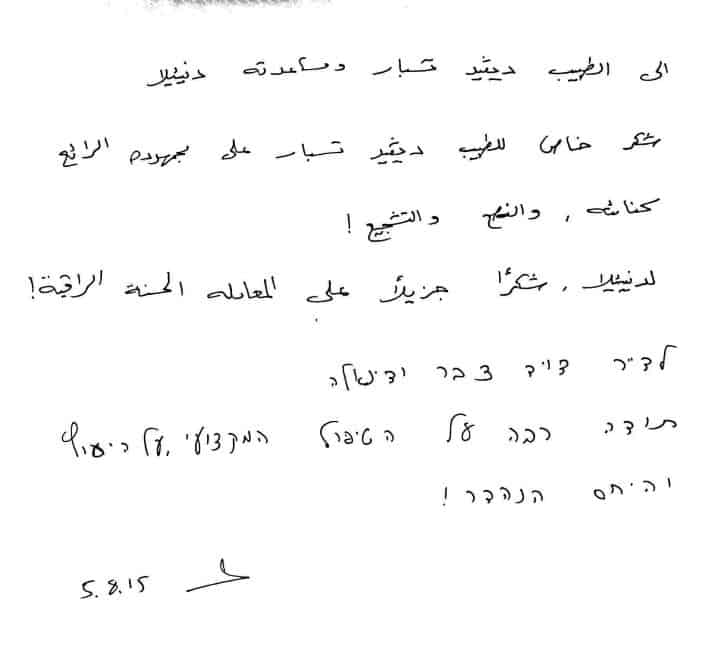 الى الطبيب ديڤيد تسبار ومساعدته دنييلا
شكر خاص للطبيب ديڤيد تسبار على مجهوده الرائع
والنصح والتشجيع!
لدنييلا، شكرًا جزيلاً على المعامله الحسنة الراقية!
לד"ר דויד צבר ודניאלה
תודה רבה על הטיפול המקצועי, על הייעוץ
והיחס הנהדר!
5.8.15